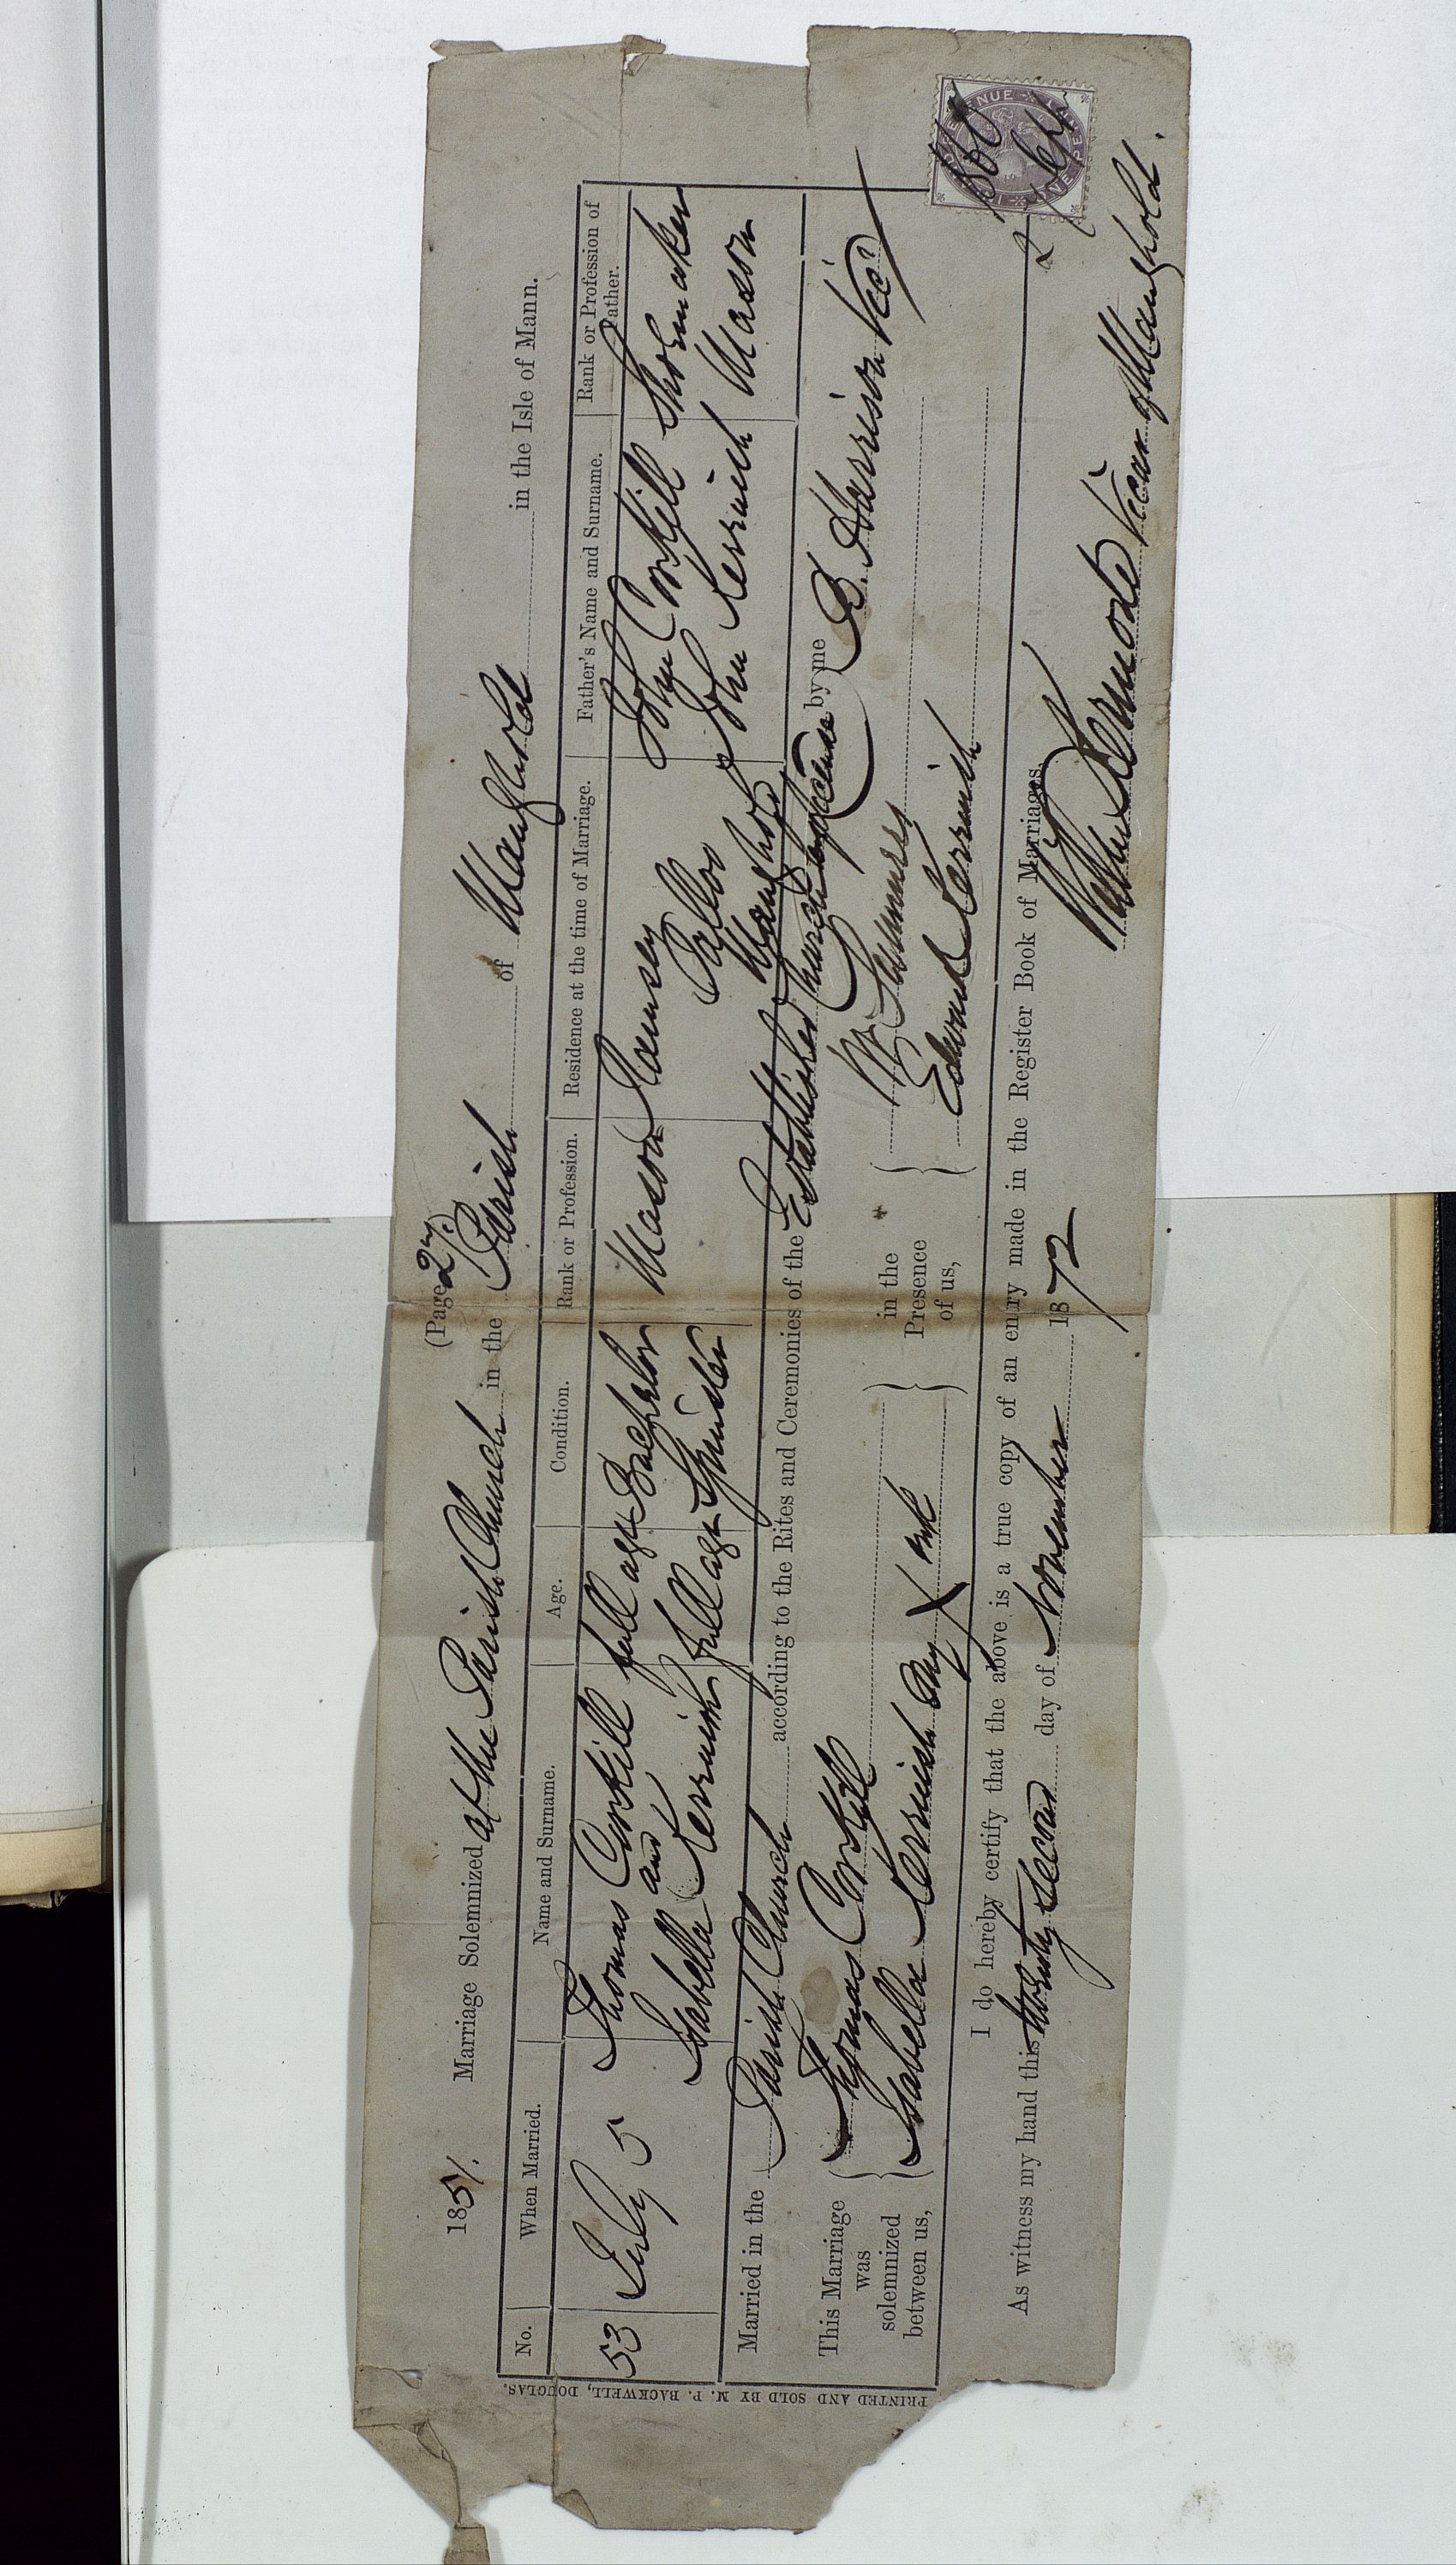 (Page 27.)
1851. Marriage Solemnized at the Parish Church in the Parish of Maughold in the Isle of Mann.
No. When Married. Name and Surname. Age. Condition. Rank or Profession. Residence at the time of Marriage. Father's Name and Surname. Rank or Profession of Father.
53 July 5 Thomas Corkill full age Bachelor Mason Ramsey John Corkill Shoemaker
and
Isabella Kerruish full age Spinster Maughold John Kerruish Mason
Married in the Parish Church according to the Rites and Ceremonies of the Established Church by me B. Harrison Vicr
This Marriage was solemnized between us, Thomas Corkill
Isabella Kerruish my X mk
in the Presence of us,
Edward Kerruish
I do hereby certify that the above is a true copy of an entry made in the Register Book of Marriages,
As witness my hand this twenty second day of November 1872
Kermode Vicar of Maughold.
PRINTED AND SOLD BY M. P. BACKWELL, DOUGLAS.